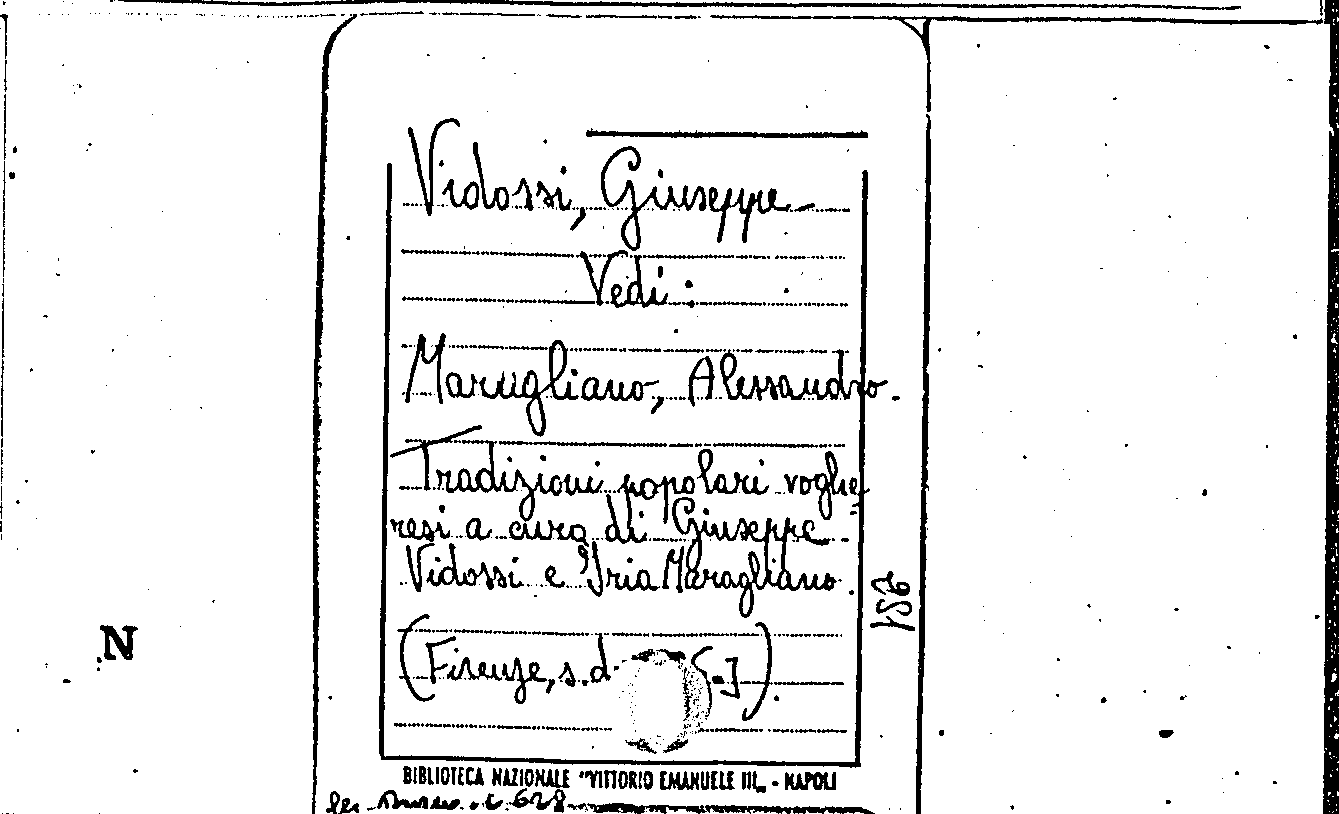 Vidossi, Giuseppe
Vedi:
Maragliano, Alessandro.
Tradizioni popolari voghe
resi a cura di Giuseppe
Vidossi e Iria Maragliano.
(Firenze, s.d.
N
BIBLIOTECA NAZIONALE "VITTORIO EMANUELE III„ - NAPOLI
628